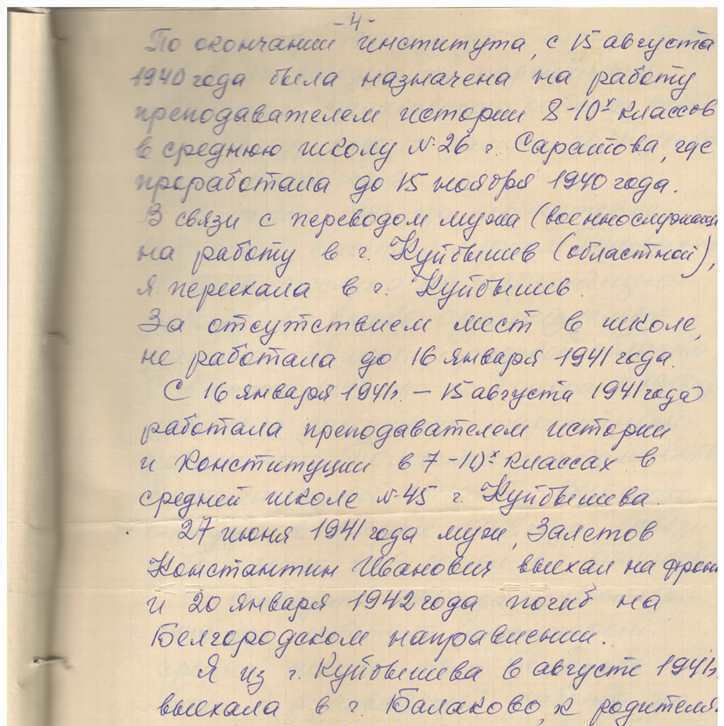 -4-
По окончании института, с 15 августа
1940 года была назначена на работу
преподавателем истории 8-10х классов
в среднюю школу №26 г. Саратова, где
проработала до 15 ноября 1940 года.
В связи с переводом мужа (военнослужащ
на работу в г. Куйбышев (областной),
я переехала в г. Куйбышев.
За отсутствием мест в школе,
не работала до 16 января 1941 года.
С 16 января 1941г. – 15 августа 1941 года
работала преподавателем истории
и Конституции в 7-10х классах в
средней школе №45 г. Куйбышева.
27 июня 1941 года муж,
Константин Иванович выехал на фрон
и 20 января 1942 года погиб на
Белгородском направлении.
Я из г. Куйбышева в августе 1941г.
выехала в г. Балаково, к родителя